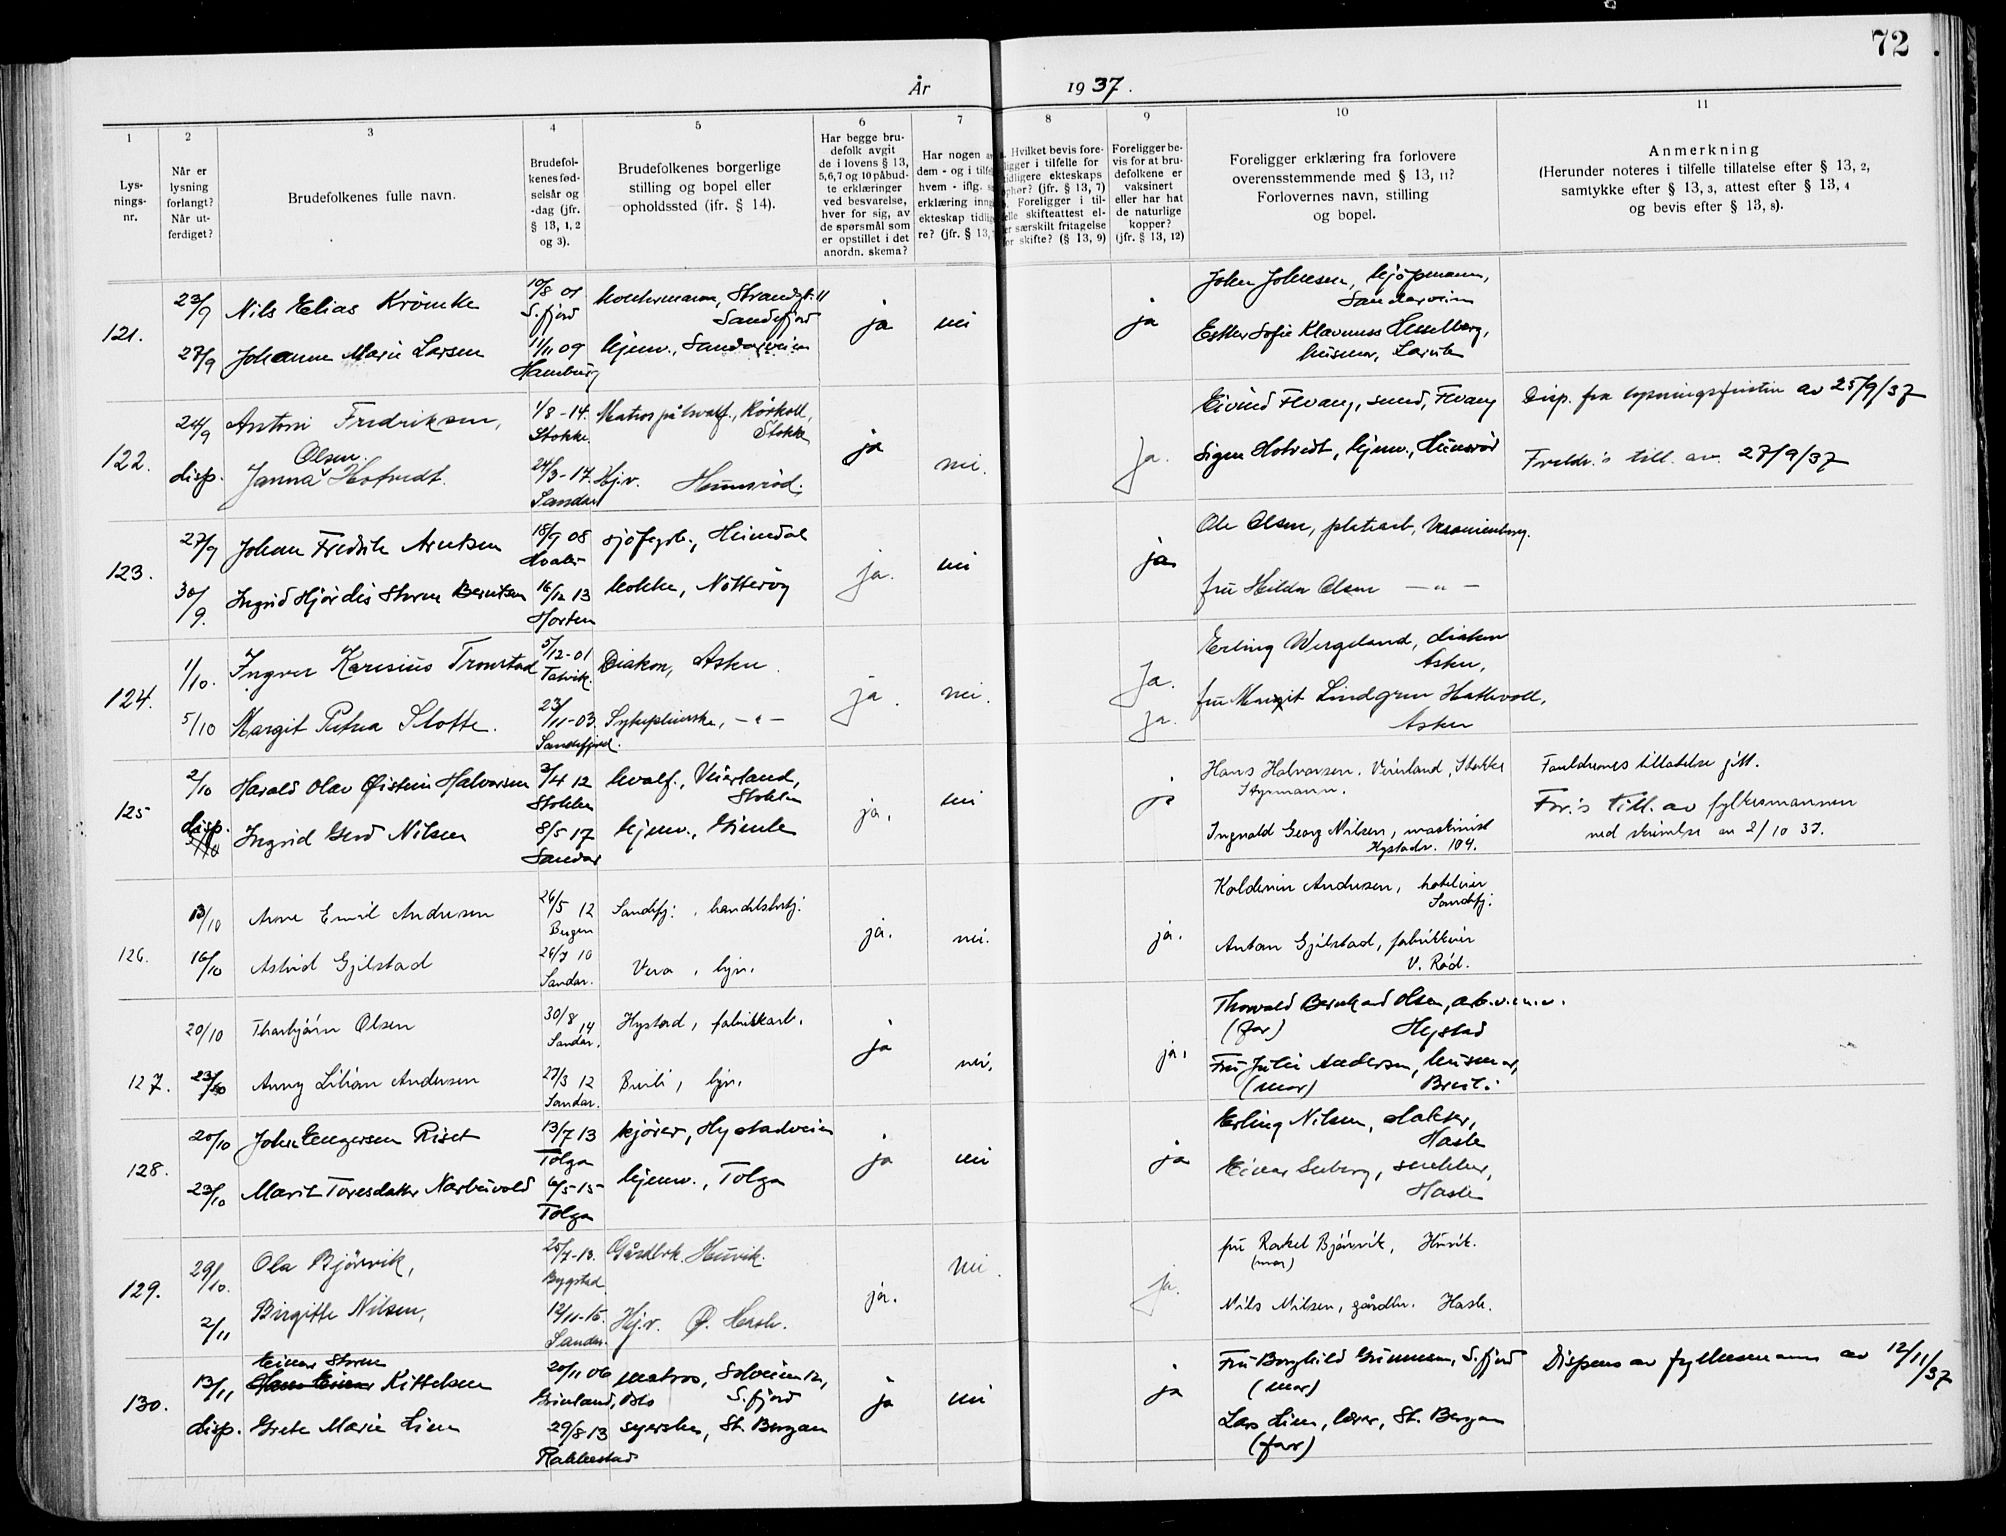 72
År 1937.
1
2
3
4
5
6
7
8
9
10
11
Lys-
nings-
nr.
Når er
lysning
forlangt?
Når ut-
ferdiget?
Brudefolkenes fulle navn.
Brudefol-
kenes fød-
selsår og
-dag (jfr.
§ 13, 1, 2
og 3).
Brudefolkenes borgerlige
stilling og bopel eller
opholdssted (ifr. § 14).
Har begge bru-
defolk avgit
de i lovens § 13,
5,6,7 og 10 påbud-
te erklæringer
ved besvarelse,
hver for sig, av
de spørsmål som
er opstillet i det
anordn. skema?
Har nogen
dem - og i
hvem - iflg.
erklæring
ekteskap
re? (jfr. § 13,
Hvilket bevis fore-
ligger i tilfelle for
ekteskaps
(jfr. § 13, 7)
Foreligger i til-
skifteattest el-
særskilt fritagelse
skifte? (§ 13, 9)
Foreligger be-
vis for at bru-
defolkene er
vaksinert
eller har hat
de naturlige
kopper?
(jfr. § 13, 12)
Foreligger erklæring fra forlovere
overensstemmende med § 13, 11?
Forlovernes navn, stilling
og bopel.
Anmerkning
(Herunder noteres i tilfelle tillatelse efter § 13, 2,
samtykke efter § 13, 3, attest efter § 13, 4
og bevis efter § 13, 8).
121.
23/9 Nils Elias 10/8 01 Strandgt. 11
S.fjord Sandefjord
27/9 Johanne Marie Larsen 11/11 09 hjemv., Sandarveien
Hamburg
ja nei ja
John Johnsen, kjøpmann,
Sandarveien
Esther Sofie Klaveness Hesselberg,
husmor, Larvik
122.
24/9 Antoni Fredriksen, 1/8-14. Matros på hvalf.,
Stokke. Stokke
Olsen
disp. Janna Hotvedt. 24/3-17. Hj.v. Haunsrød.
Sandar
ja nei. Ja.
Eivind Flvang, smed, Flvang
Signe Hotvedt, hjemv.,
Disp. fra lysningsfristen av 25/9/37
Foreldr.'s till. av 27/9/37
123.
27/9 Johan Fredrik Arntsen 18/9 08 sjøfyrb., Heimdal
Hvaler
30/9. Ingrid Hjørdis Storm Berntsen 16/12 13 kokke, Nøtterøy
Horten
ja. nei ja
Ole Olsen, platearb,
fru Hilda Olsen — " —
124.
1/10. Ingver Karisius Tronstad 5/12-01 Diakon, Asker.
5/10 Margit Petra Slotte. 23/11-03. Sykepleierske, — " —
Sandefjord.
ja. nei. Ja.
ja.
Erling Wergeland, diakon
Asker,
fru Margit Lindgren Hattevoll,
Asker
125
2/10 Harald Olav Øistein Halvorsen 3/4 12 hvalf., Veierland,
Stokke Stokke
disp. Ingrid Gerd Nilsen 8/5 17 hjemv., Gimle
Sandar
ja. nei
Hans Halvorsen. Veierland, Stokke
Styrmann.
Ingvald Georg Nilsen, maskinist
Hystadv. 104.
Foreldrenes tillatelse gitt.
For.'s till. av fylkesmannen
ved skrivelse av 2/10 37.
126.
13/10 Arne Emil Andresen 26/5 12 Sandefj: , handelsbetj.
Bergen
16/10 Astrid Gjelstad 26/7 10 Vera , hjv.
Sandar.
ja. nei. ja.
Koldevin Andresen, hoteleier
Sandefj.
Anton Gjelstad, fabrikkeier
V. Rød.
127.
20/10 Thorbjørn Olsen 30/8 14 Hystad, fabrikkarb.
Sandar.
23/10 Anny Lilian Andersen 27/3 12 Breili, hjv.
Sandar.
ja nei. ja.
Thorvald Bernhard Olsen, arb.v.m.v.
(far) Hystad
Fru Julie Andersen, husmor,
(mor) Breili
128.
20/10 Riset 13/7 13 kjører, Hystadveien
Tolga
23/10 Marit Toresdatter Narbuvold 6/5-15- hjemv., Tolga
Tolga
ja nei ja
Erling Nilsen, slakter,
Hasle
Einar Seeberg, snekker,
Hasle
129.
29/10. Ola Bjørvik, 25/7-13. Gårdbrk. Huvik.
Bygstad
2/11 Birgitte Nilsen, 12/11-15. Hj.v. Ø. Hasle.
Sandar.
ja. nei. ja.
fru Rakel Bjørvik, Huvik.
(mor)
Nils Nilsen, gårdbr. Hasle.
130.
Einar Storm
13/11 Kittelsen 20/11 06 matros, Solveien 12,
Grünland, Oslo S.fjord
disp. Grete Marie Lien 29/8 13 syerske, St. Bergan
Rakkestad
ja nei ja
Fru Borghild Gunnersen, S.fjord
(mor)
Lars Lien, lærer, St. Bergan
(far)
Dispens av fylkesmann av 12/11/37